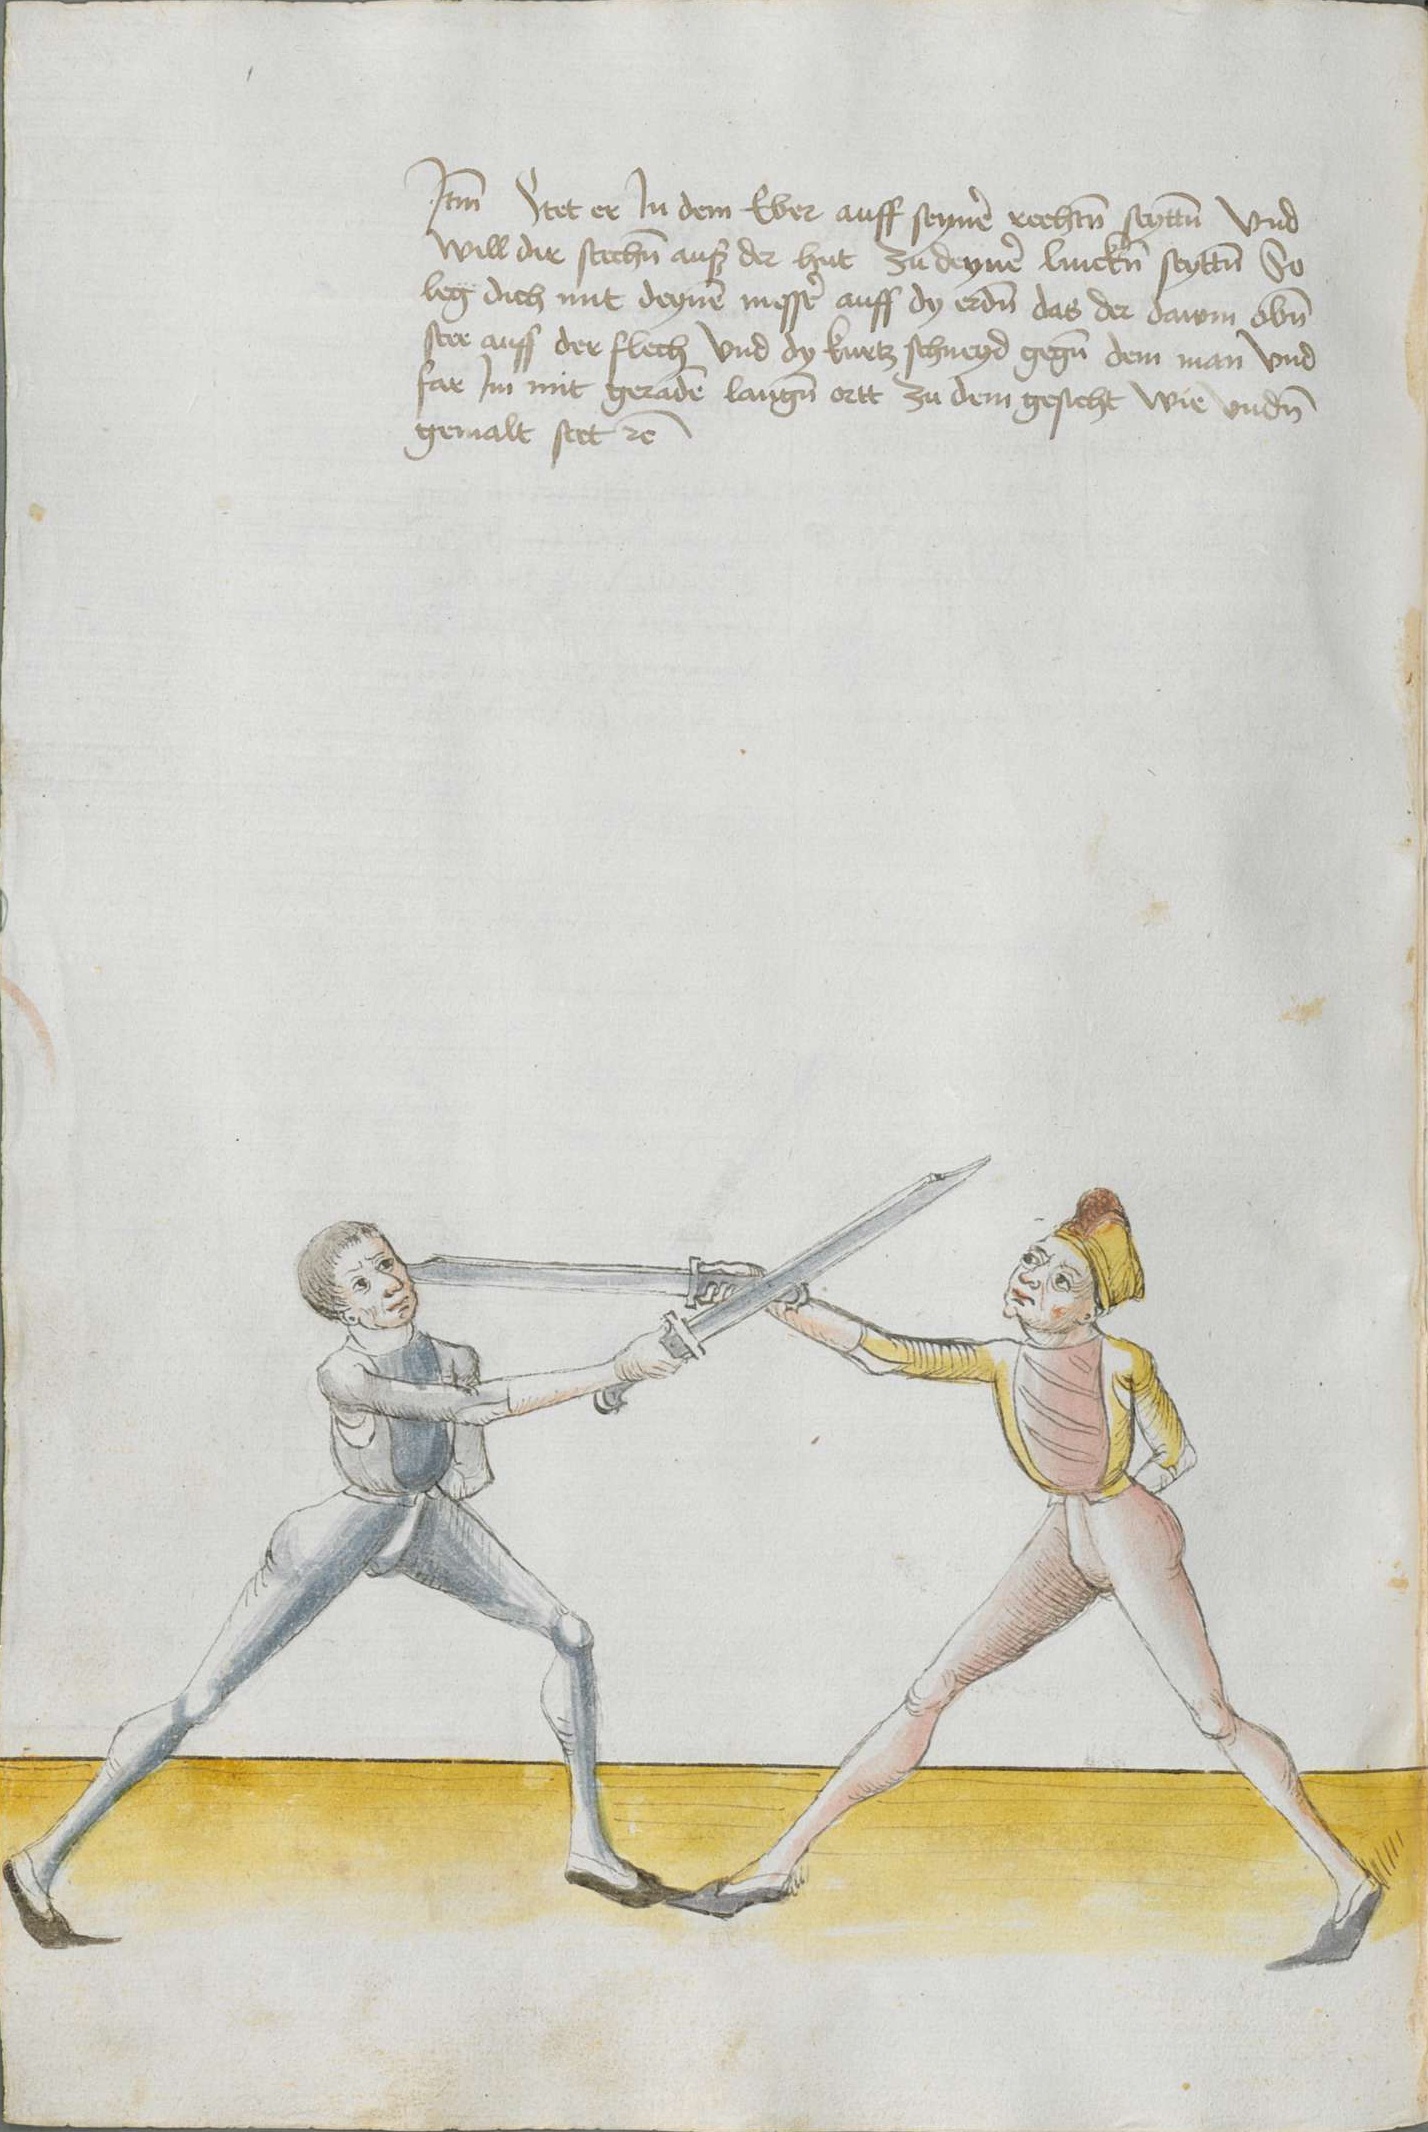 Itm̄ Stet er In dem Eber auff seynē rechtñ seyttñ Vnd
Will dir stechñ auß der hut zu deynē linckñ seyttñ So
leg dich mit deynē messer auff dy erdñ das der dawm obñ
stee auff der flech Vnd dy kurtz schneyd gegñ dem man Vnd
far Im mit geradē langñ ortt zu dem gesicht Wie vndñ
gemalt stet ⁊c̄